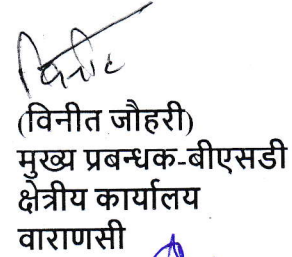 विनीत
(विनीत जौहरी)
मुख्य प्रबन्धक-बीएसडी
क्षेत्रीय कार्यालय
वाराणसी